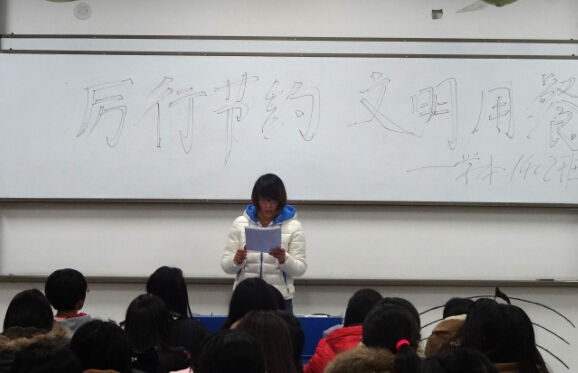 厉行节约 文明用餐
一学本1902班